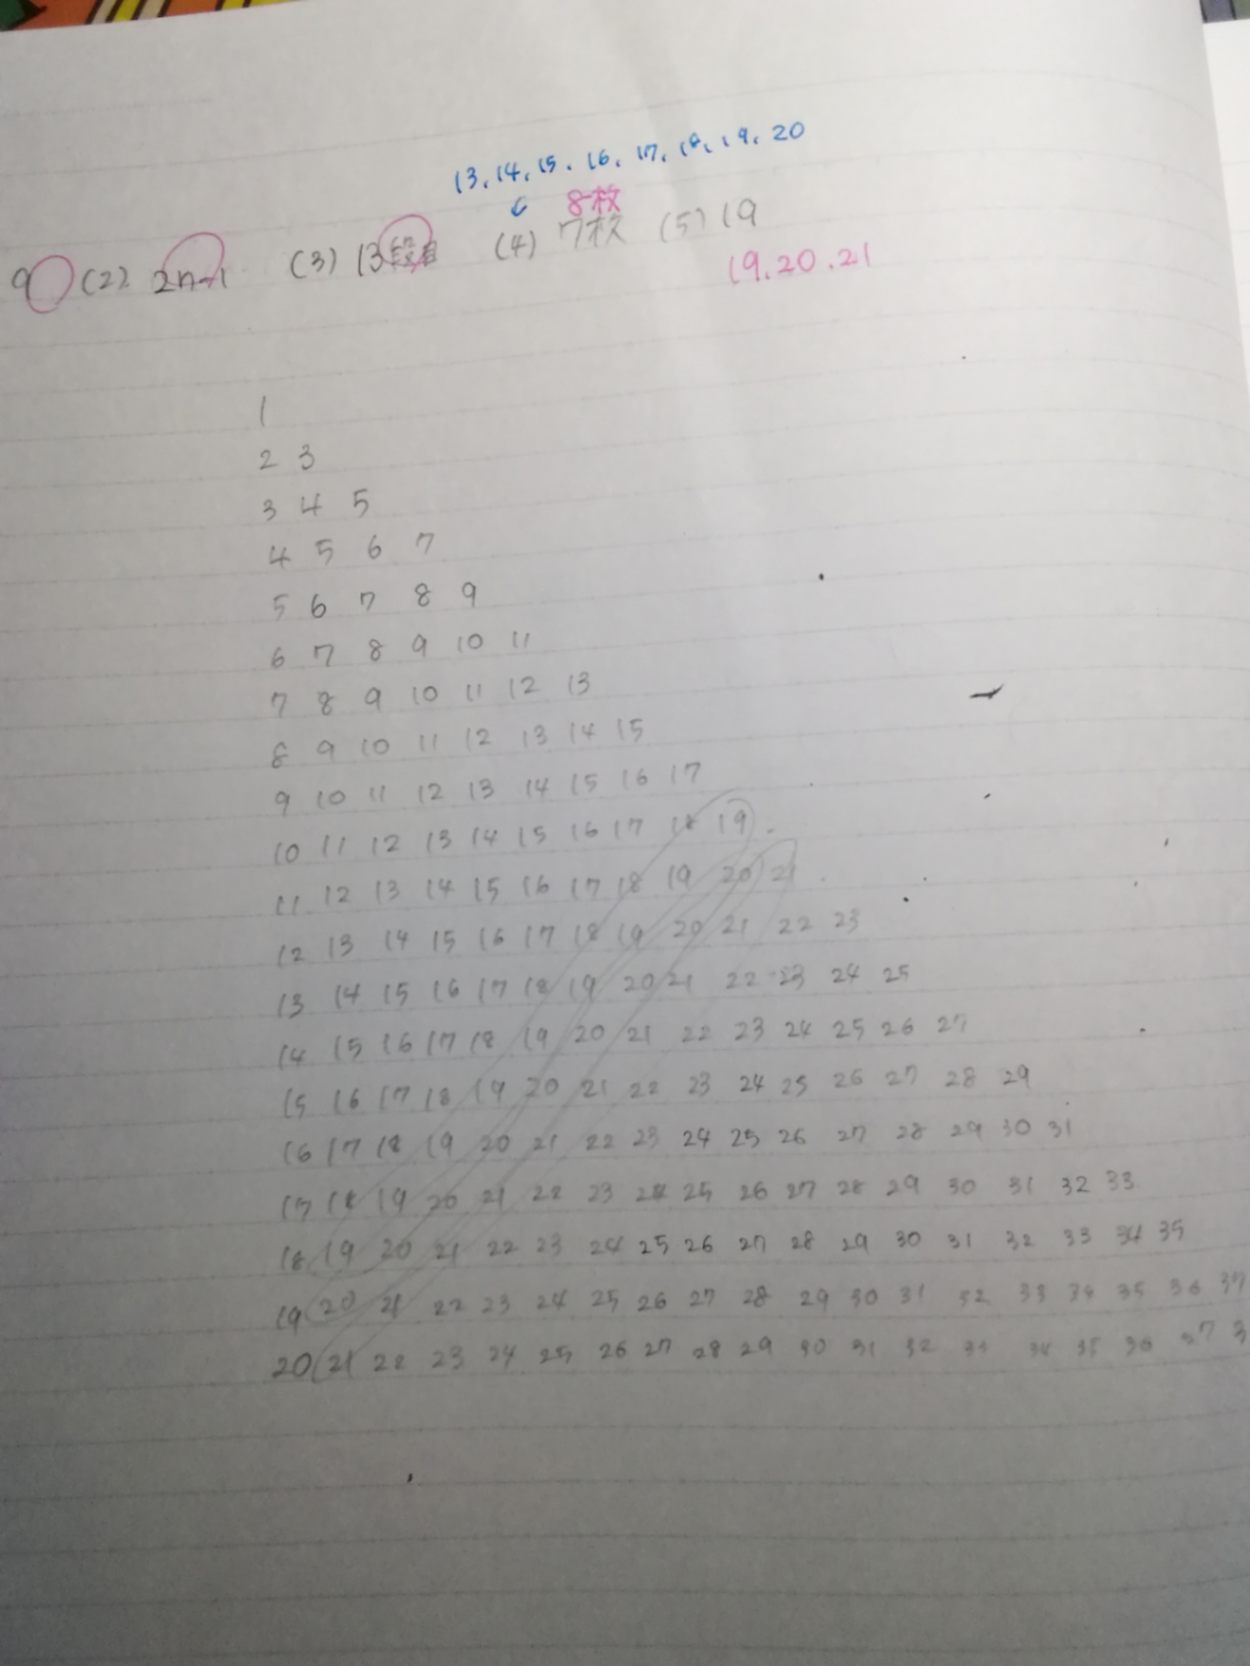 13, 14, 15, 16, 17, 18, 19, 20
8枚
9 (2) 2n-1 (3) 13段目 (4) 7枚 (5) 19
19.20.21
1
2 3
3 4 5
4 5 6 7
5 6 7 8 9
6 7 8 9 10 11
7 8 9 10 11 12 13
8 9 10 11 12 13 14 15
9 10 11 12 13 14 15 16 17
10 11 12 13 14 15 16 17 18 19
11 12 13 14 15 16 17 18 19 20 21
12 13 14 15 16 17 18 19 20 21 22 23
13 14 15 16 17 18 19 20 21 22 23 24 25
14 15 16 17 18 19 20 21 22 23 24 25 26 27
15 16 17 18 19 20 21 22 23 24 25 26 27 28 29
16 17 18 19 20 21 22 23 24 25 26 27 28 29 30 31
17 18 19 20 21 22 23 24 25 26 27 28 29 30 31 32 33
18 19 20 21 22 23 24 25 26 27 28 29 30 31 32 33 34 35
19 20 21 22 23 24 25 26 27 28 29 30 31 32 33 34 35 36 37
20 21 22 23 24 25 26 27 28 29 30 31 32 33 34 35 36 37 3